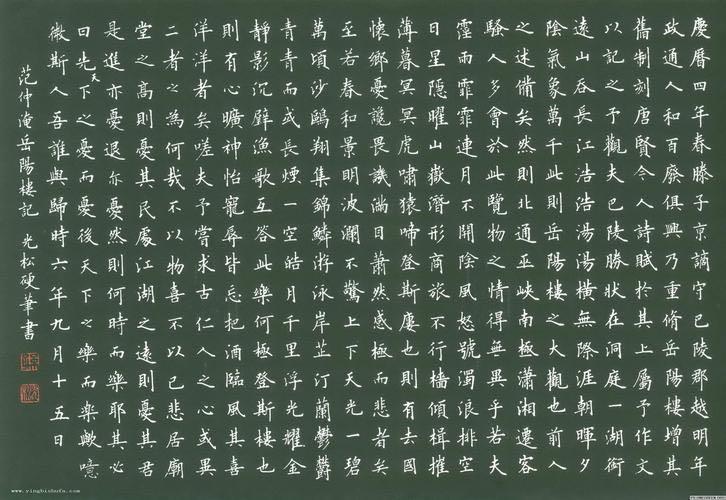 慶曆四年春滕子京謫守巴陵郡越明年
政通人和百廢俱興乃重脩岳陽樓增其
舊制刻唐賢今人詩賦於其上屬予作文
以記之予觀夫巴陵勝狀在洞庭一湖銜
遠山吞長江浩浩湯湯橫無際涯朝暉夕
陰氣象萬千此則岳陽樓之大觀也前人
之述備矣然則北通巫峽南極瀟湘遷客
騷人多會於此覽物之情得無異乎若夫
霪雨霏霏連月不開陰風怒號濁浪排空
日星隱曜山嶽潛形商旅不行檣傾楫摧
薄暮冥冥虎嘯猿啼登斯廔也則有去國
懷鄉憂讒畏譏滿目蕭然感極而悲者矣
至若春和景明波瀾不驚上下天光一碧
萬頃沙鷗翔集錦鱗游泳岸芷汀蘭鬱鬱
青青而或長煙一空皓月千里浮光耀金
靜影沉璧漁歌互答此樂何極登斯樓也
則有心曠神怡寵辱皆忘把酒臨風其喜
洋洋者矣嗟夫予嘗求古仁人之心或異
二者之為何哉不以物喜不以己悲居廟
堂之高則憂其民處江湖之遠則憂其君
是進亦憂退亦憂然則何時而樂耶其必
曰先天下之憂而憂後天下之樂而樂歟噫
微斯人吾誰與歸時六年九月十五日
范仲淹岳陽樓記 光松硬筆書
www.yingbishufa.com